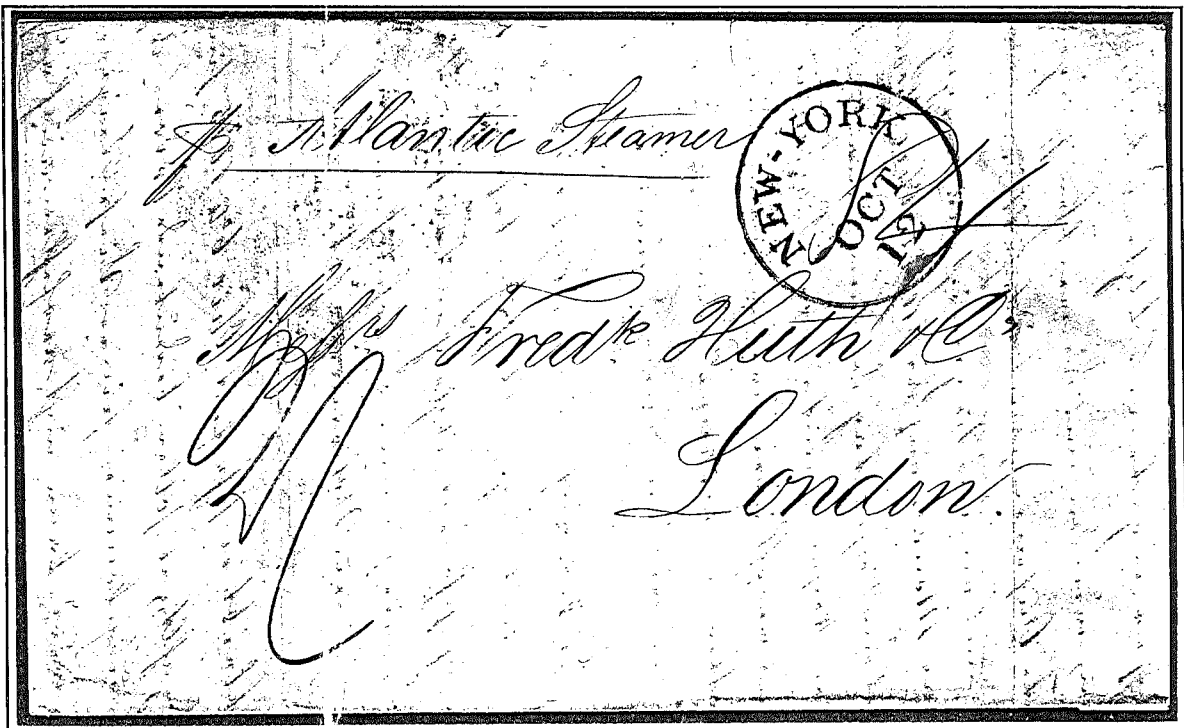 p Atlantic Steamer
NEW-YORK
OCT
12
Mess^rs Fred^k Huth & C^o
London.